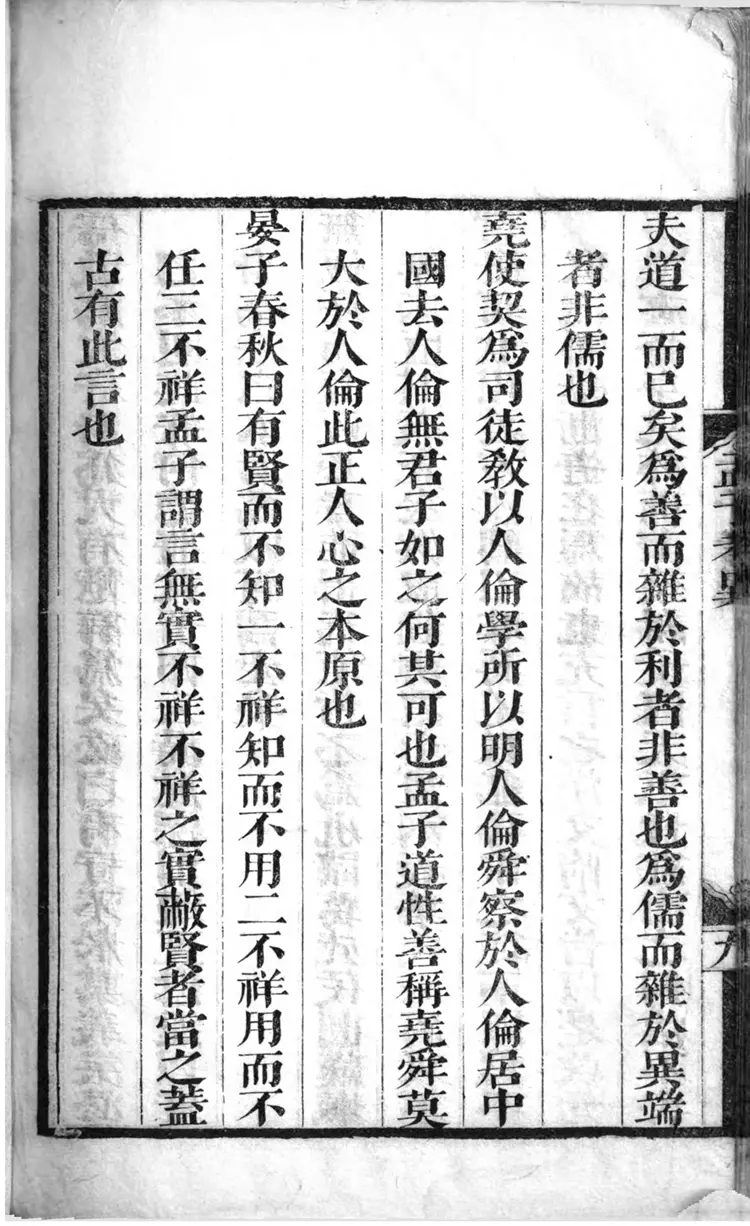 夫道一而已矣為善而雜於利者非善也為儒而雜於異端
者非儒也
堯使契為司徒敎以人倫學所以明人倫舜察於人倫居中
國去人倫無君子如之何其可也孟子道性善稱堯舜莫
大於人倫此正人心之本原也
晏子春秋曰有賢而不知一不祥知而不用二不祥用而不
任三不祥孟子謂言無實不祥不祥之實蔽賢者當之蓋
古有此言也